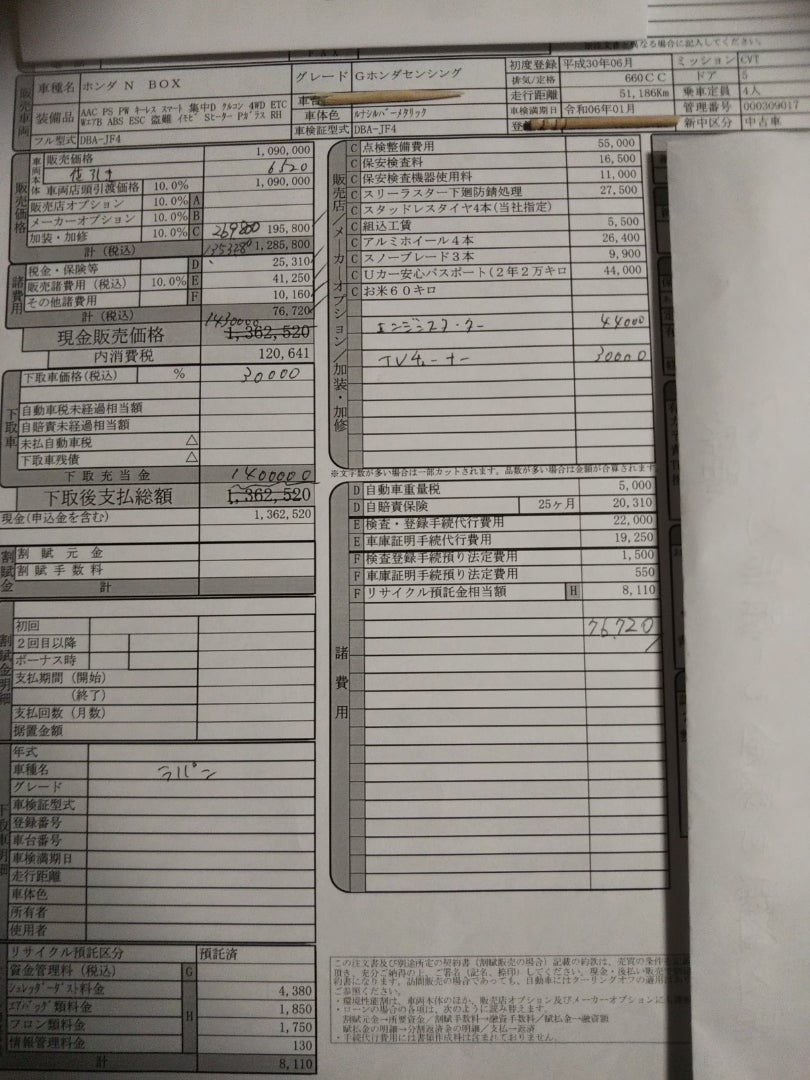 異なる場合に記入してください。
販売車両
車種名 ホンダ N BOX
グレード Gホンダセンシング
初度登録 平成30年06月 ミッション CVT
排気/定格 660CC ドア 5
走行距離 51,186Km 乗車定員 4人
装備品 AAC PS PW キーレス スマート 集中D クルコン 4WD ETC
WエアB ABS ESC 盗難 イモビ Sヒーター Pガラス RH
車体色 ルナシルバーメタリック
車検満期日 令和06年01月 管理番号 000309017
フル型式 DBA-JF4 車検証型式 DBA-JF4
新中区分 中古車
販売価格
車両本体
販売価格 1,090,000
値引き 6520
車両店頭引渡価格 10.0% 1,090,000
販売店オプション 10.0% A
メーカーオプション 10.0% B
加装・加修 10.0% C 269800 195,800
計（税込） 1353280 1,285,800
諸費用
税金・保険等 D 25,310
販売諸費用（税込） 10.0% E 41,250
その他諸費用 F 10,160
計（税込） 76,720
1430000
現金販売価格 1,362,520
内消費税 120,641
下取車
下取車価格(税込) % 30000
自動車税未経過相当額
自賠責未経過相当額
未払自動車税 △
下取車残債 △
下取充当金 1400000
下取後支払総額 1,362,520
現金(申込金を含む) 1,362,520
割賦金
割賦元金
割賦手数料
計
割賦金明細
初回
2回目以降
ボーナス時
支払期間（開始）
（終了）
支払回数（月数）
据置金額
下取車明細
年式
車種名 ラパン
グレード
車検証型式
登録番号
車台番号
車検満期日
走行距離
車体色
所有者
使用者
リサイクル預託区分 預託済
資金管理料（税込） G
シュレッダーダスト料金 H 4,380
エアバッグ類料金 1,850
フロン類料金 1,750
情報管理料金 130
計 8,110
販売店/メーカーオプション/加装・加修
C 点検整備費用 55,000
C 保安検査料 16,500
C 保安検査機器使用料 11,000
C スリーラスター下廻防錆処理 27,500
C スタッドレスタイヤ4本(当社指定)
C 組込工賃 5,500
C アルミホイール4本 26,400
C スノーブレード3本 9,900
C Uカー安心パスポート(2年2万キロ 44,000
C お米60キロ
エンジンスターター 44000
TVチューナー 30000
※文字数が多い場合は一部カットされます。品数が多い場合は金額が合算されます。
諸費用
D 自動車重量税 5,000
D 自賠責保険 25ヶ月 20,310
E 検査・登録手続代行費用 22,000
E 車庫証明手続代行費用 19,250
F 検査登録手続預り法定費用 1,500
F 車庫証明手続預り法定費用 550
F リサイクル預託金相当額 H 8,110
76,720
この注文書及び別途所定の契約書（割賦販売の場合）記載の約款は、売買の条件を
頂き、充分ご納得の上、ご署名（記名、捺印）してください。現金・後払い販売で
約書になります。訪問販売の場合であっても、自動車にはクーリングオフの適用は
ご参照ください。
・環境性能割は、車両本体のほか、販売店オプション及びメーカーオプションに
・ローンの場合の各項は、次のように読み替えます。
割賦元金→所要資金／割賦手数料→融資手数料／賦払金→融資額
賦払金の明細→分割返済金の明細／支払→返済
・手続代行費用には書類作成料は含まれておりません。